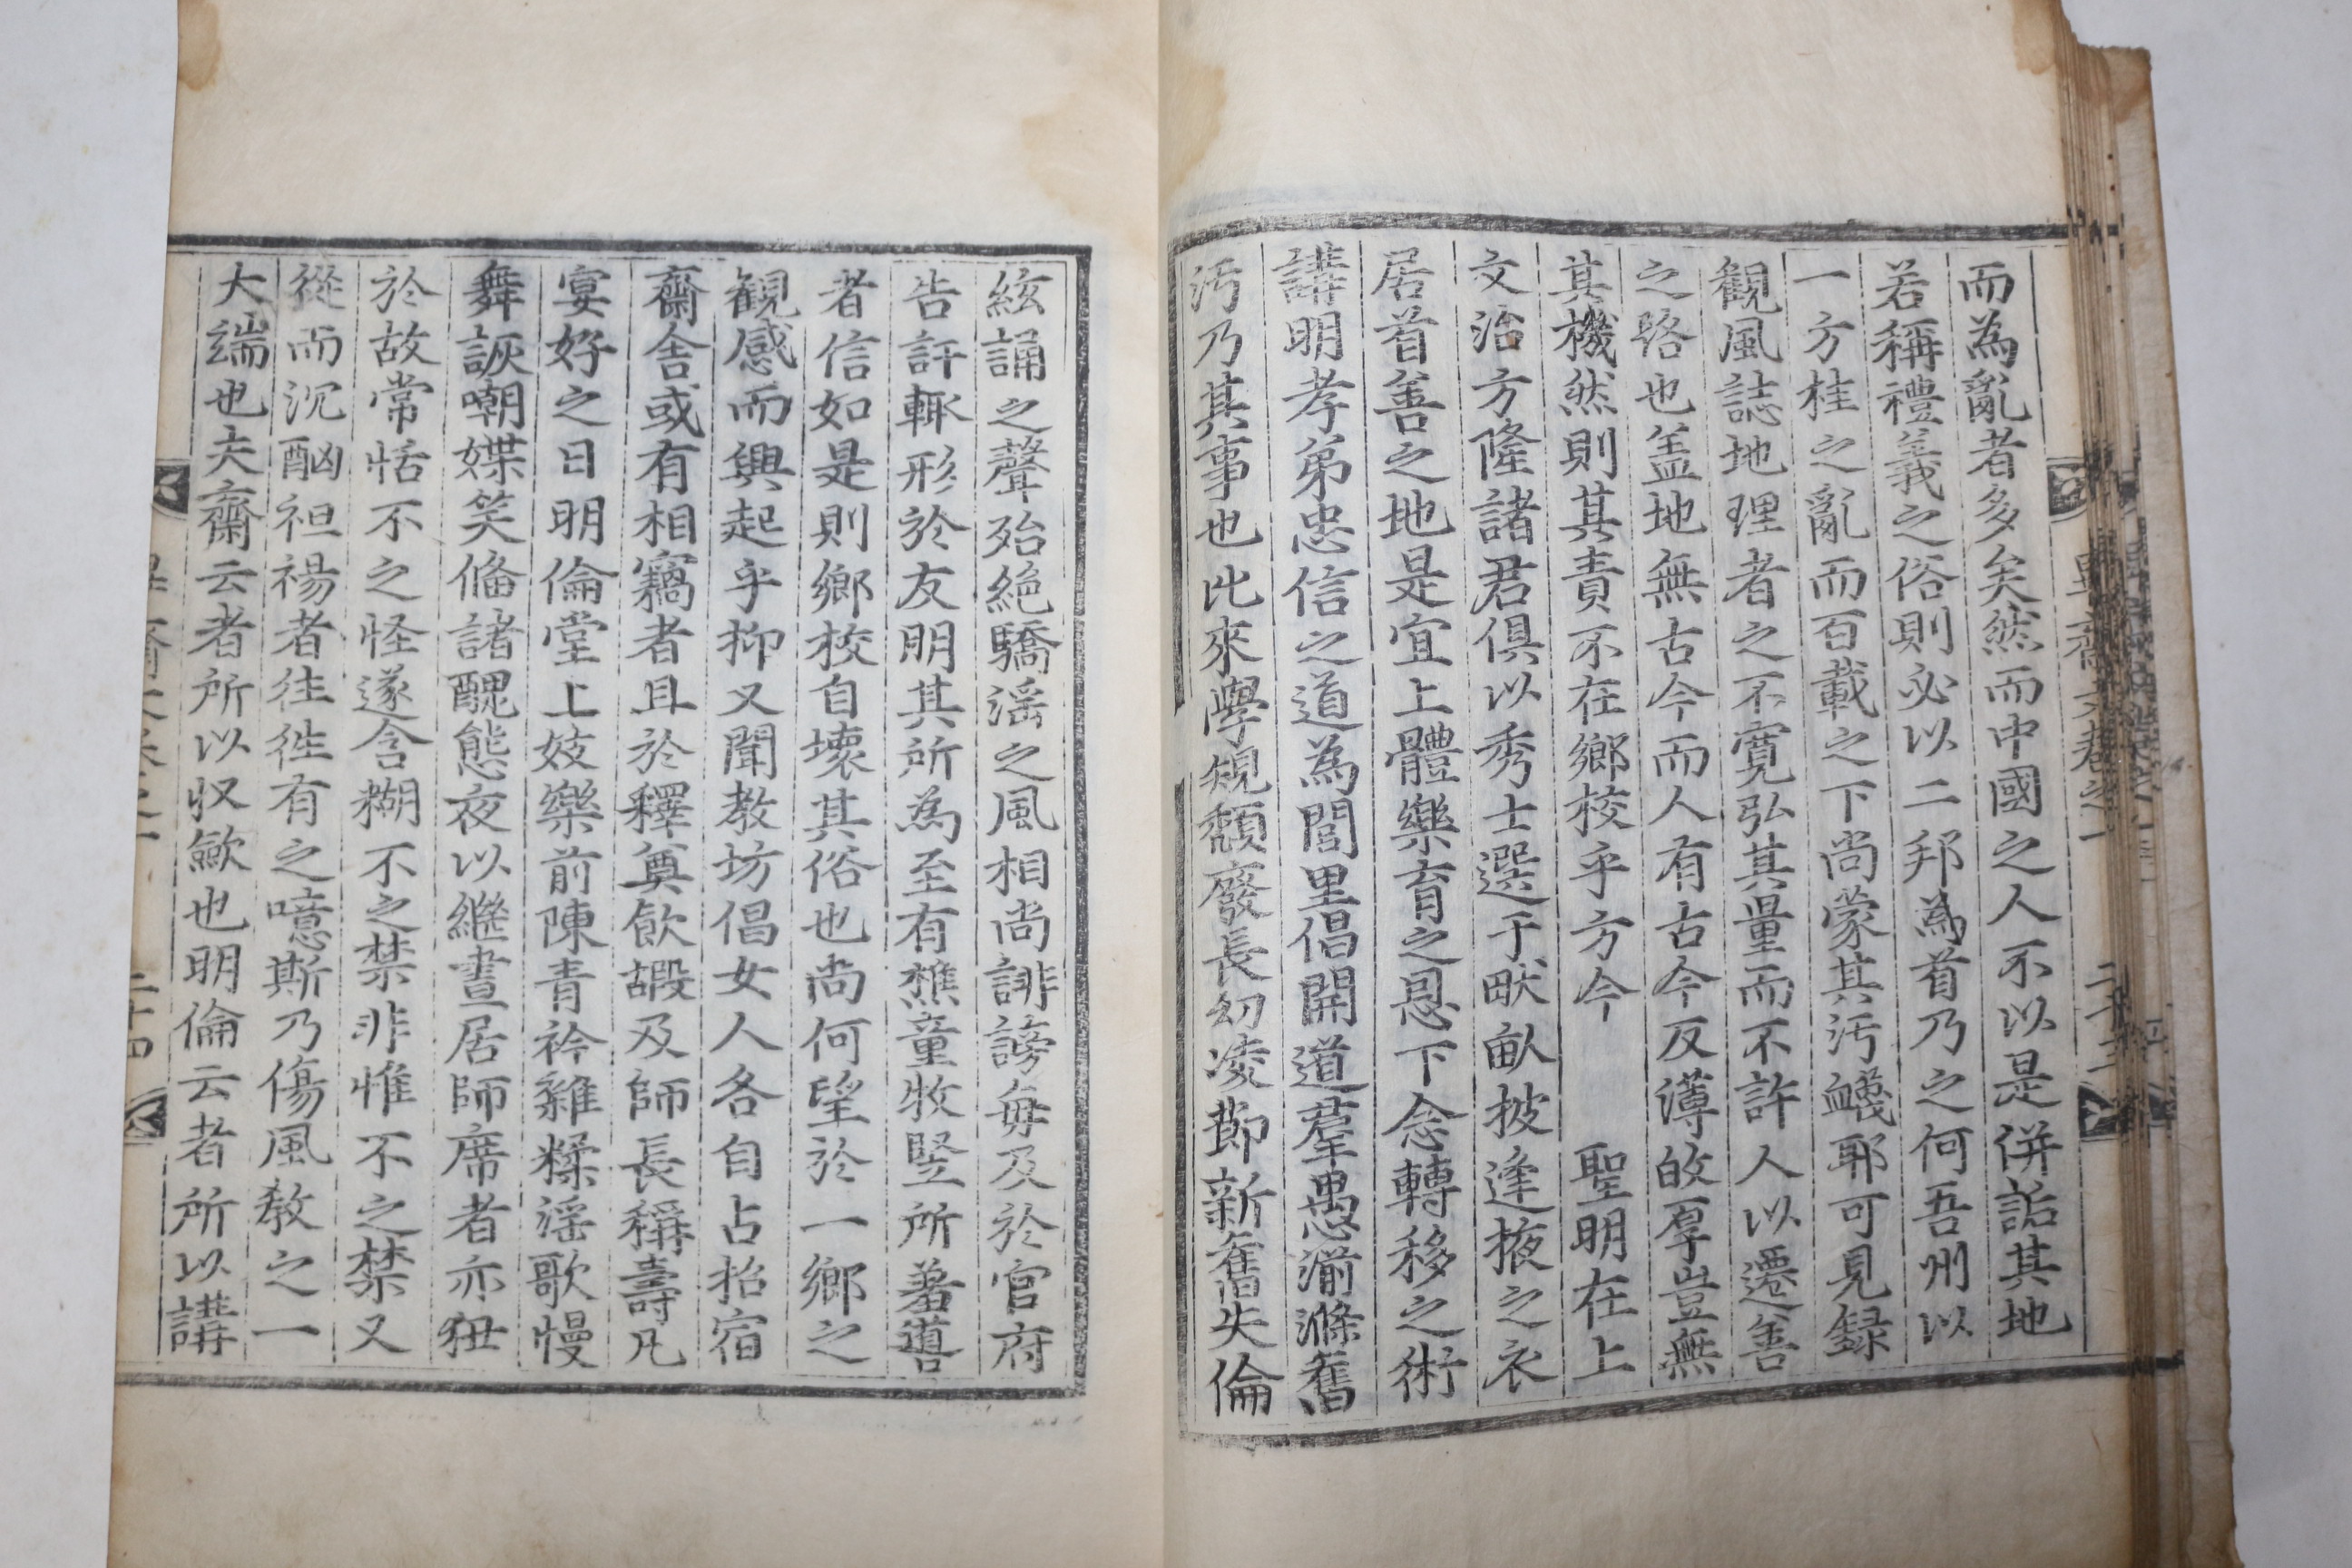 而為亂者多矣然而中國之人不以是併詬其地
若稱禮義之俗則必以二邦為首乃之何吾州以
一方桂之亂而百載之下尚蒙其汚衊耶可見録
觀風誌地理者之不寬弘其量而不許人以遷善
之路也盖地無古今而人有古今反薄故厚豈無
其機然則其責不在鄉校乎方今　聖明在上
文治方隆諸君俱以秀士選于畎畝披逢掖之衣
居首善之地是宜上體樂育之恩下念轉移之術
講明孝弟忠信之道為閭里倡開道羣愚湔滌舊
汚乃其事也比來學規頽廢長幼凌節新舊失倫
絃誦之聲殆絶驕滛之風相尚誹謗毎及於官府
告訐輙形於友朋其所為至有樵童牧竪所羞噵
者信如是則鄉校自壞其俗也尚何望於一鄉之
觀感而興起乎抑又聞教坊倡女人各自占招宿
齋舍或有相竊者且於釋奠飲嘏及師長稱壽凡
宴好之日明倫堂上妓樂前陳青衿雜糅滛歌慢
舞詼嘲媟笑俻諸醜態夜以繼晝居師席者亦狃
於故常恬不之怪遂含糊不之禁非惟不之禁又
從而沉酗袒裼者往徃有之噫斯乃傷風敎之一
大端也夫齋云者所以収歛也明倫云者所以講
二十四